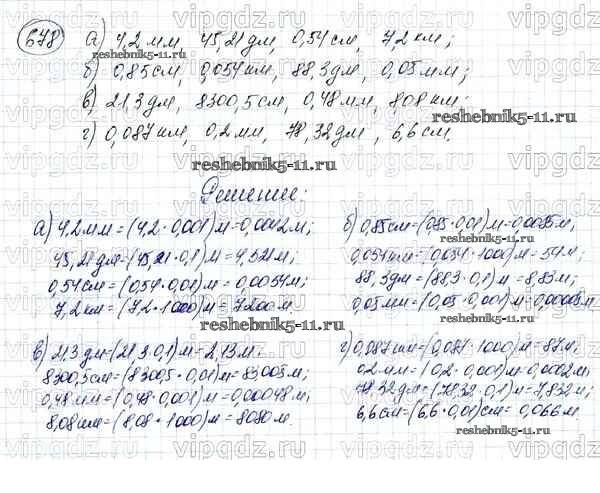 678 а) 4,2 мм, 45,21 дм, 0,54 см, 7,2 км;
б) 0,85 см, 0,054 км, 88,3 дм, 0,05 мм;
в) 21,3 дм, 8300,5 см, 0,48 мм, 8,08 км;
г) 0,087 км, 0,2 мм, 78,32 дм, 6,6 см.
Решение:
а) 4,2 мм = (4,2 · 0,001) м = 0,0042 м;
45,21 дм = (45,21 · 0,1) м = 4,521 м;
0,54 см = (0,54 · 0,01) м = 0,0054 м;
7,2 км = (7,2 · 1000) м = 7200 м.
б) 0,85 см = (0,85 · 0,01) м = 0,0085 м;
0,054 км = (0,054 · 1000) м = 54 м;
88,3 дм = (88,3 · 0,1) м = 8,83 м;
0,05 мм = (0,05 · 0,001) м = 0,00005 м.
в) 21,3 дм = (21,3 · 0,1) м = 2,13 м;
8300,5 см = (8300,5 · 0,01) м = 83,005 м;
0,48 мм = (0,48 · 0,001) м = 0,00048 м;
8,08 км = (8,08 · 1000) м = 8080 м.
г) 0,087 км = (0,087 · 1000) м = 87 м;
0,2 мм = (0,2 · 0,001) м = 0,0002 м;
78,32 дм = (78,32 · 0,1) м = 7,832 м;
6,6 см = (6,6 · 0,01) см = 0,066 м.
reshebnik5-11.ru
reshebnik5-11.ru
reshebnik5-11.ru
reshebnik5-11.ru
reshebnik5-11.ru
reshebnik5-11.ru
vipgdz.ru